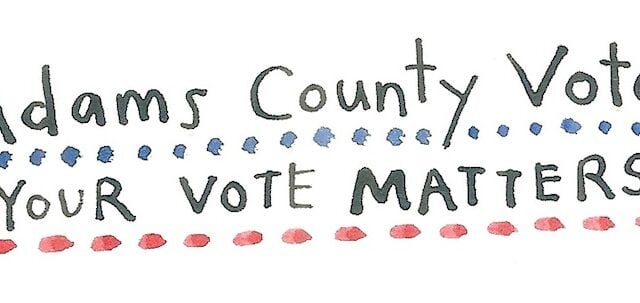 Adams County Vote
YOUR VOTE MATTERS